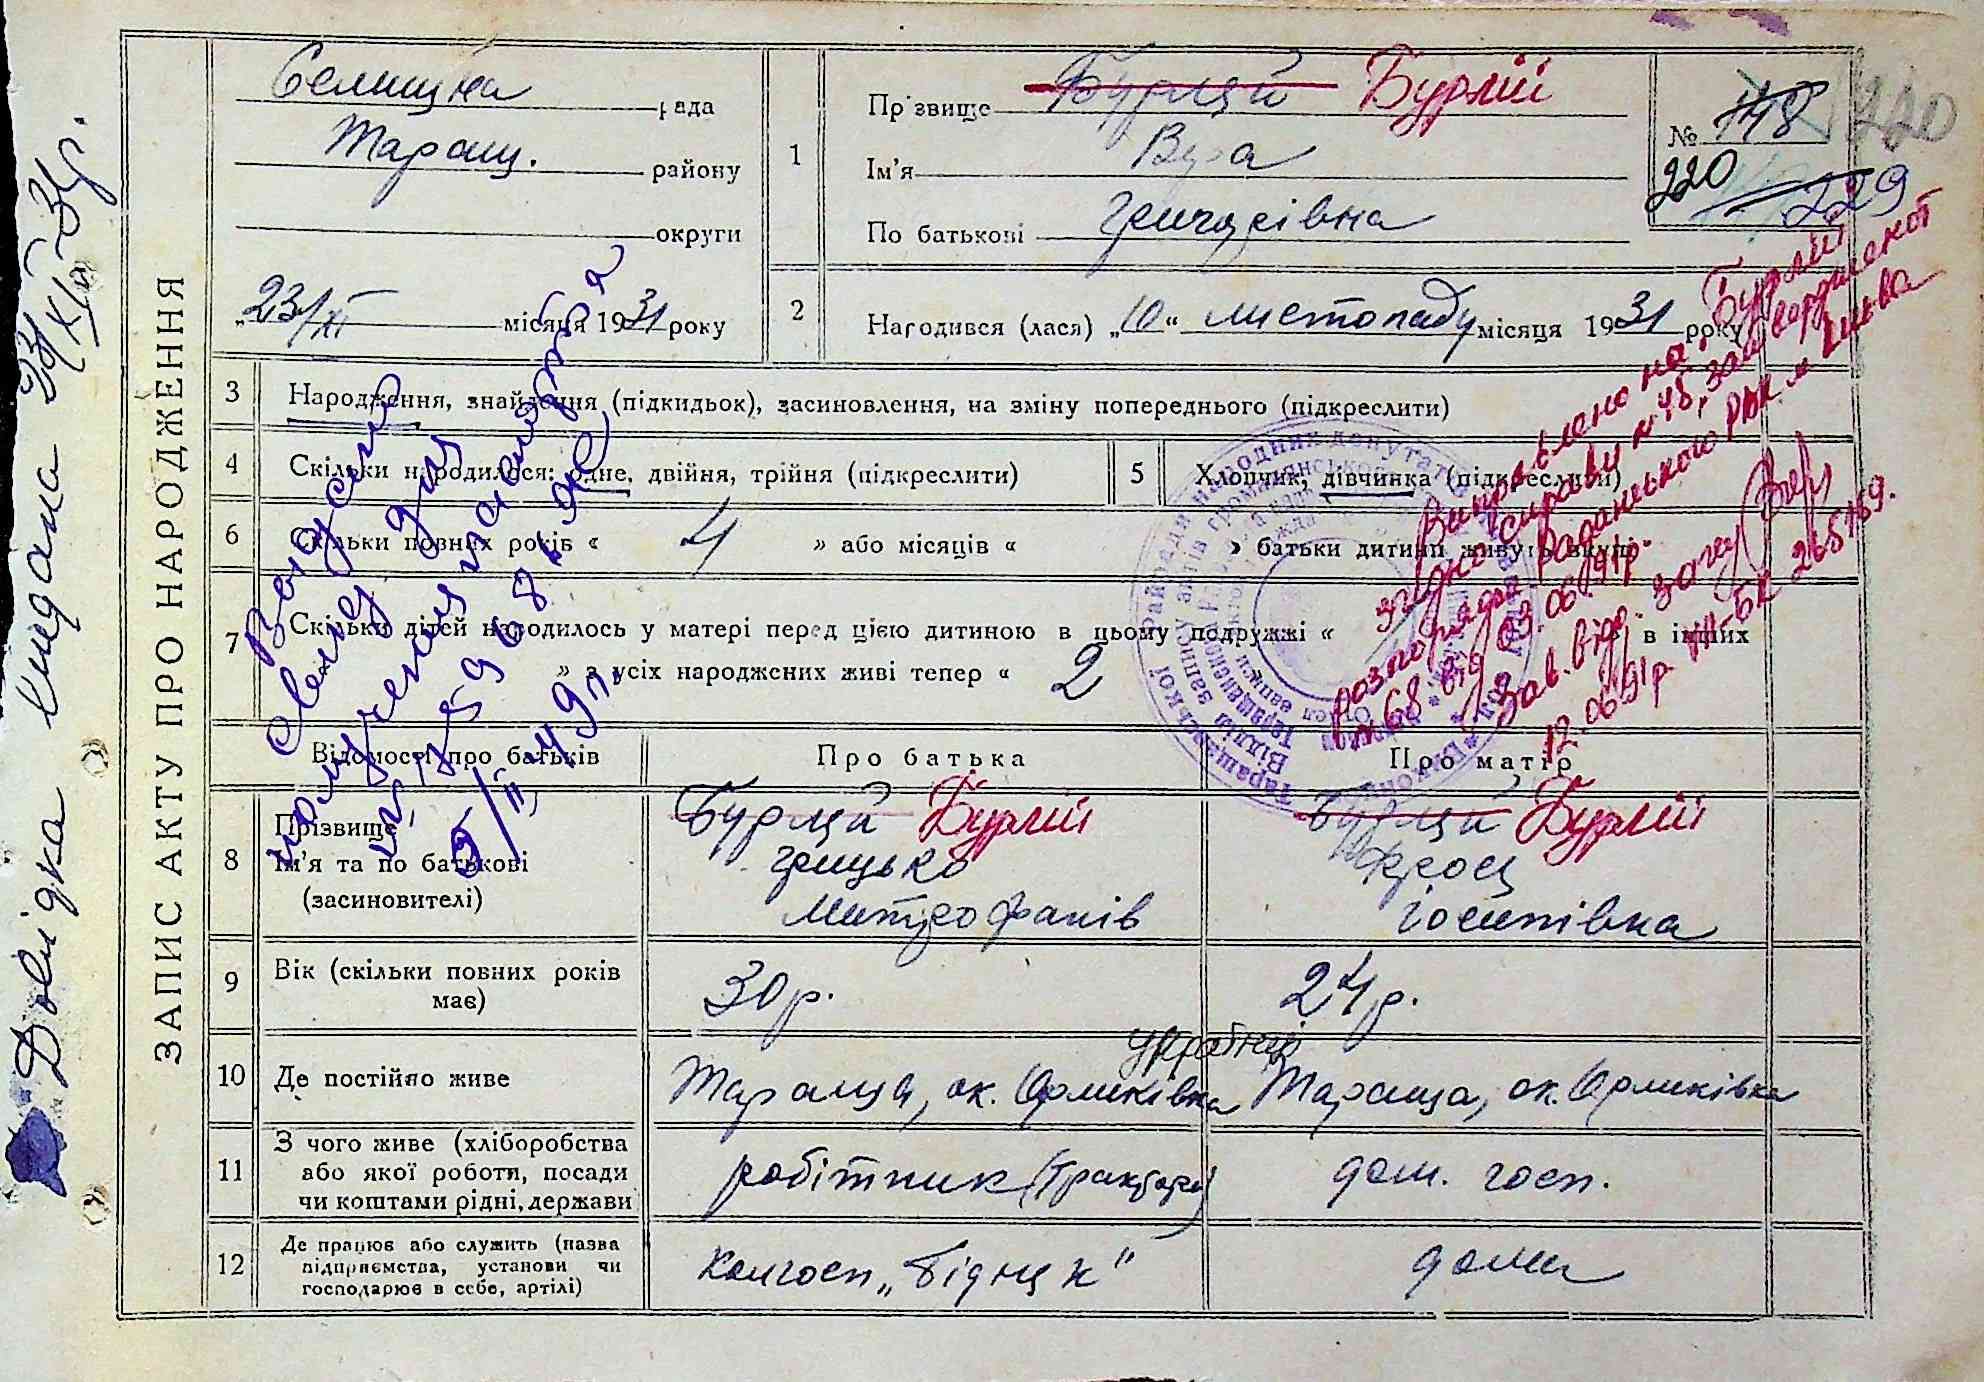 ЗАПИС АКТУ ПРО НАРОДЖЕННЯ
Довідка видана 23/XI-31р.
Селищна рада
Таращ. району
округи
„23/XI місяця 1931 року
1
Прізвище Бурлій
Ім'я Віра
По батькові Григорівна
№ 148
220
229
220
2
Народився (лася) „10“ листопаду місяця 1931 року
3
Народження, знайдення (підкидьок), засиновлення, на зміну попереднього (підкреслити)
4
Скільки народилося: одне, двійня, трійня (підкреслити)
5
Хлопчик, дівчинка (підкреслити)
6
Скільки повних років « 4 » або місяців « » батьки дитини живуть вкупі
7
Скільки дітей народилось у матері перед цією дитиною в цьому подружжі « в інших
» з усіх народжених живі тепер « 2
Виправлено на: Бурлій
згідно справи № 48, затвердженої
розпорядж Радянського РВК м Києва
№ 68 від 03.06.91р.
Зав. відд. загсу
12.06.91р
265169.
5/II 49
Відомості про батьків
Про батька
Про матір
8
Прізвище,
Ім'я та по батькові
(засиновителі)
Бурлій
Грицько
Митрофанів
Бурлій
Фросц
Іосипівна
9
Вік (скільки повних років має)
30 р.
24 р.
10
Де постійно живе
Тараща, ок. Орликівка
Тараща, ок. Орликівка
11
З чого живе (хліборобства
або якої роботи, посади
чи коштами рідні, держави
робітник
дом. госп.
12
Де працює або служить (назва
підприємства, установи чи
господарює в себе, артілі)
Колгосп „Бідняк"
дома